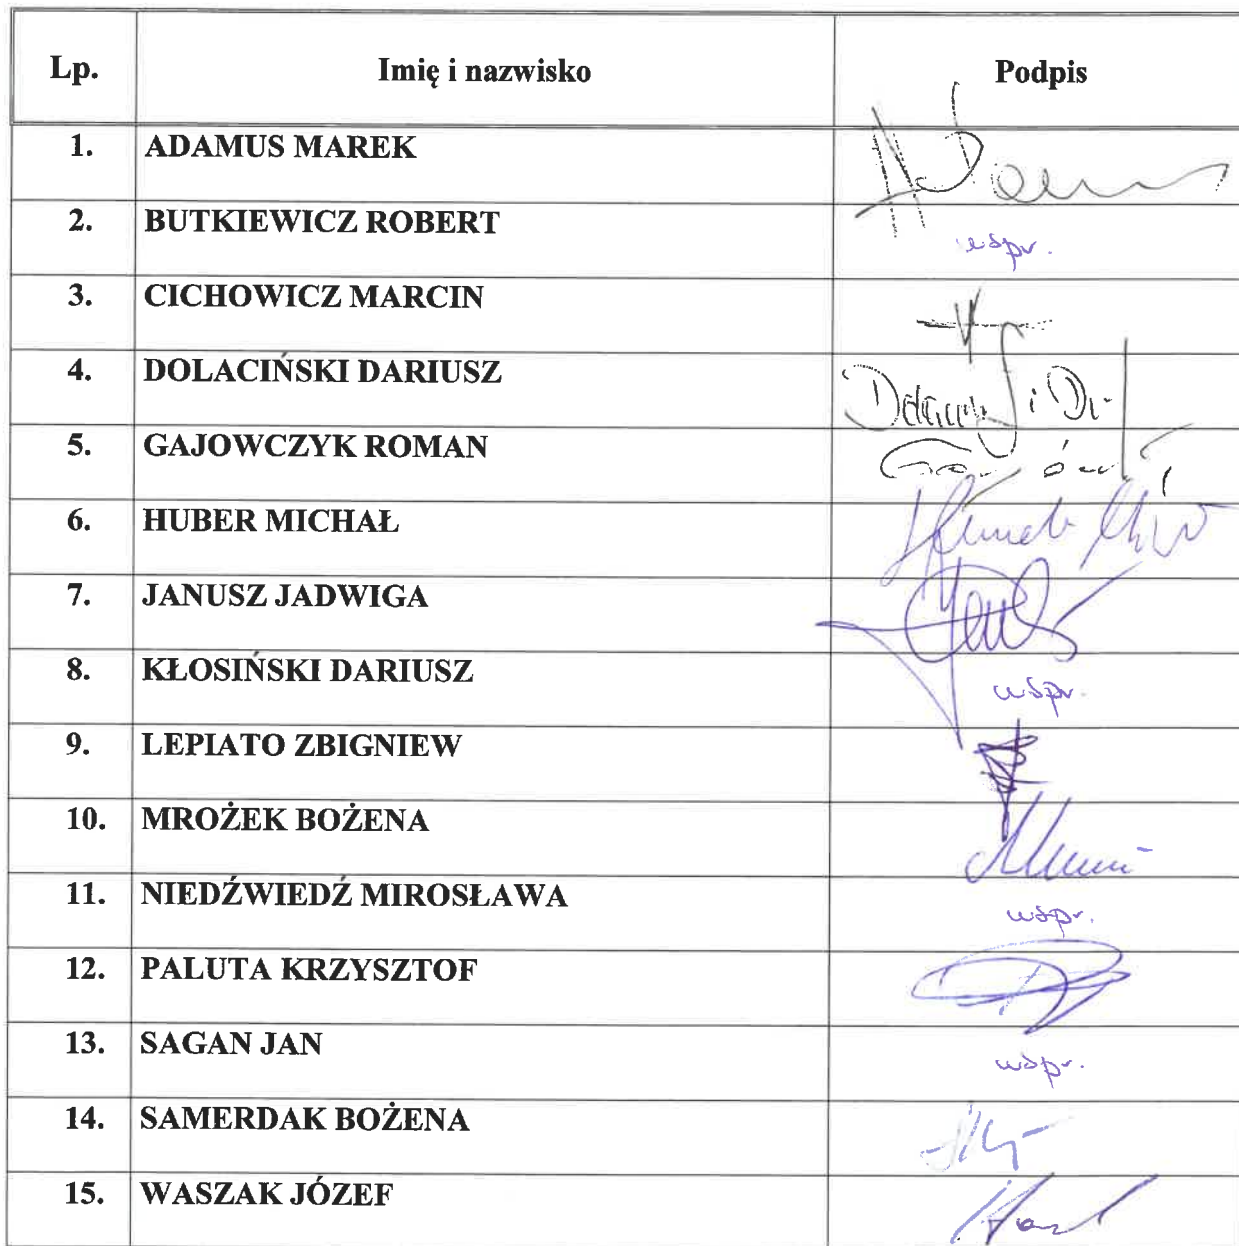 Lp. Imię i nazwisko Podpis
1. ADAMUS MAREK
2. BUTKIEWICZ ROBERT uspr.
3. CICHOWICZ MARCIN
4. DOLACIŃSKI DARIUSZ
5. GAJOWCZYK ROMAN
6. HUBER MICHAŁ
7. JANUSZ JADWIGA
8. KŁOSIŃSKI DARIUSZ uspr.
9. LEPIATO ZBIGNIEW
10. MROŻEK BOŻENA
11. NIEDŹWIEDŹ MIROSŁAWA uspr.
12. PALUTA KRZYSZTOF
13. SAGAN JAN uspr.
14. SAMERDAK BOŻENA
15. WASZAK JÓZEF